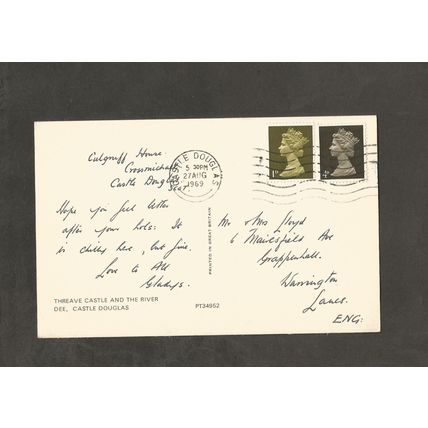 Culgruff House.
Crossmichael
Castle Douglas
Scot.
Hope you feel better
after your hols: It
is chilly here, but fine.
Love to All
Gladys.
THREAVE CASTLE AND THE RIVER
DEE, CASTLE DOUGLAS
PT34952
PRINTED IN GREAT BRITAIN
CASTLE DOUGLAS
5 30PM
27 AUG
1969
1D
4D
Mr & Mrs Lloyd
6 Ave
Grappenhall.
Warrington
Lancs.
ENG: